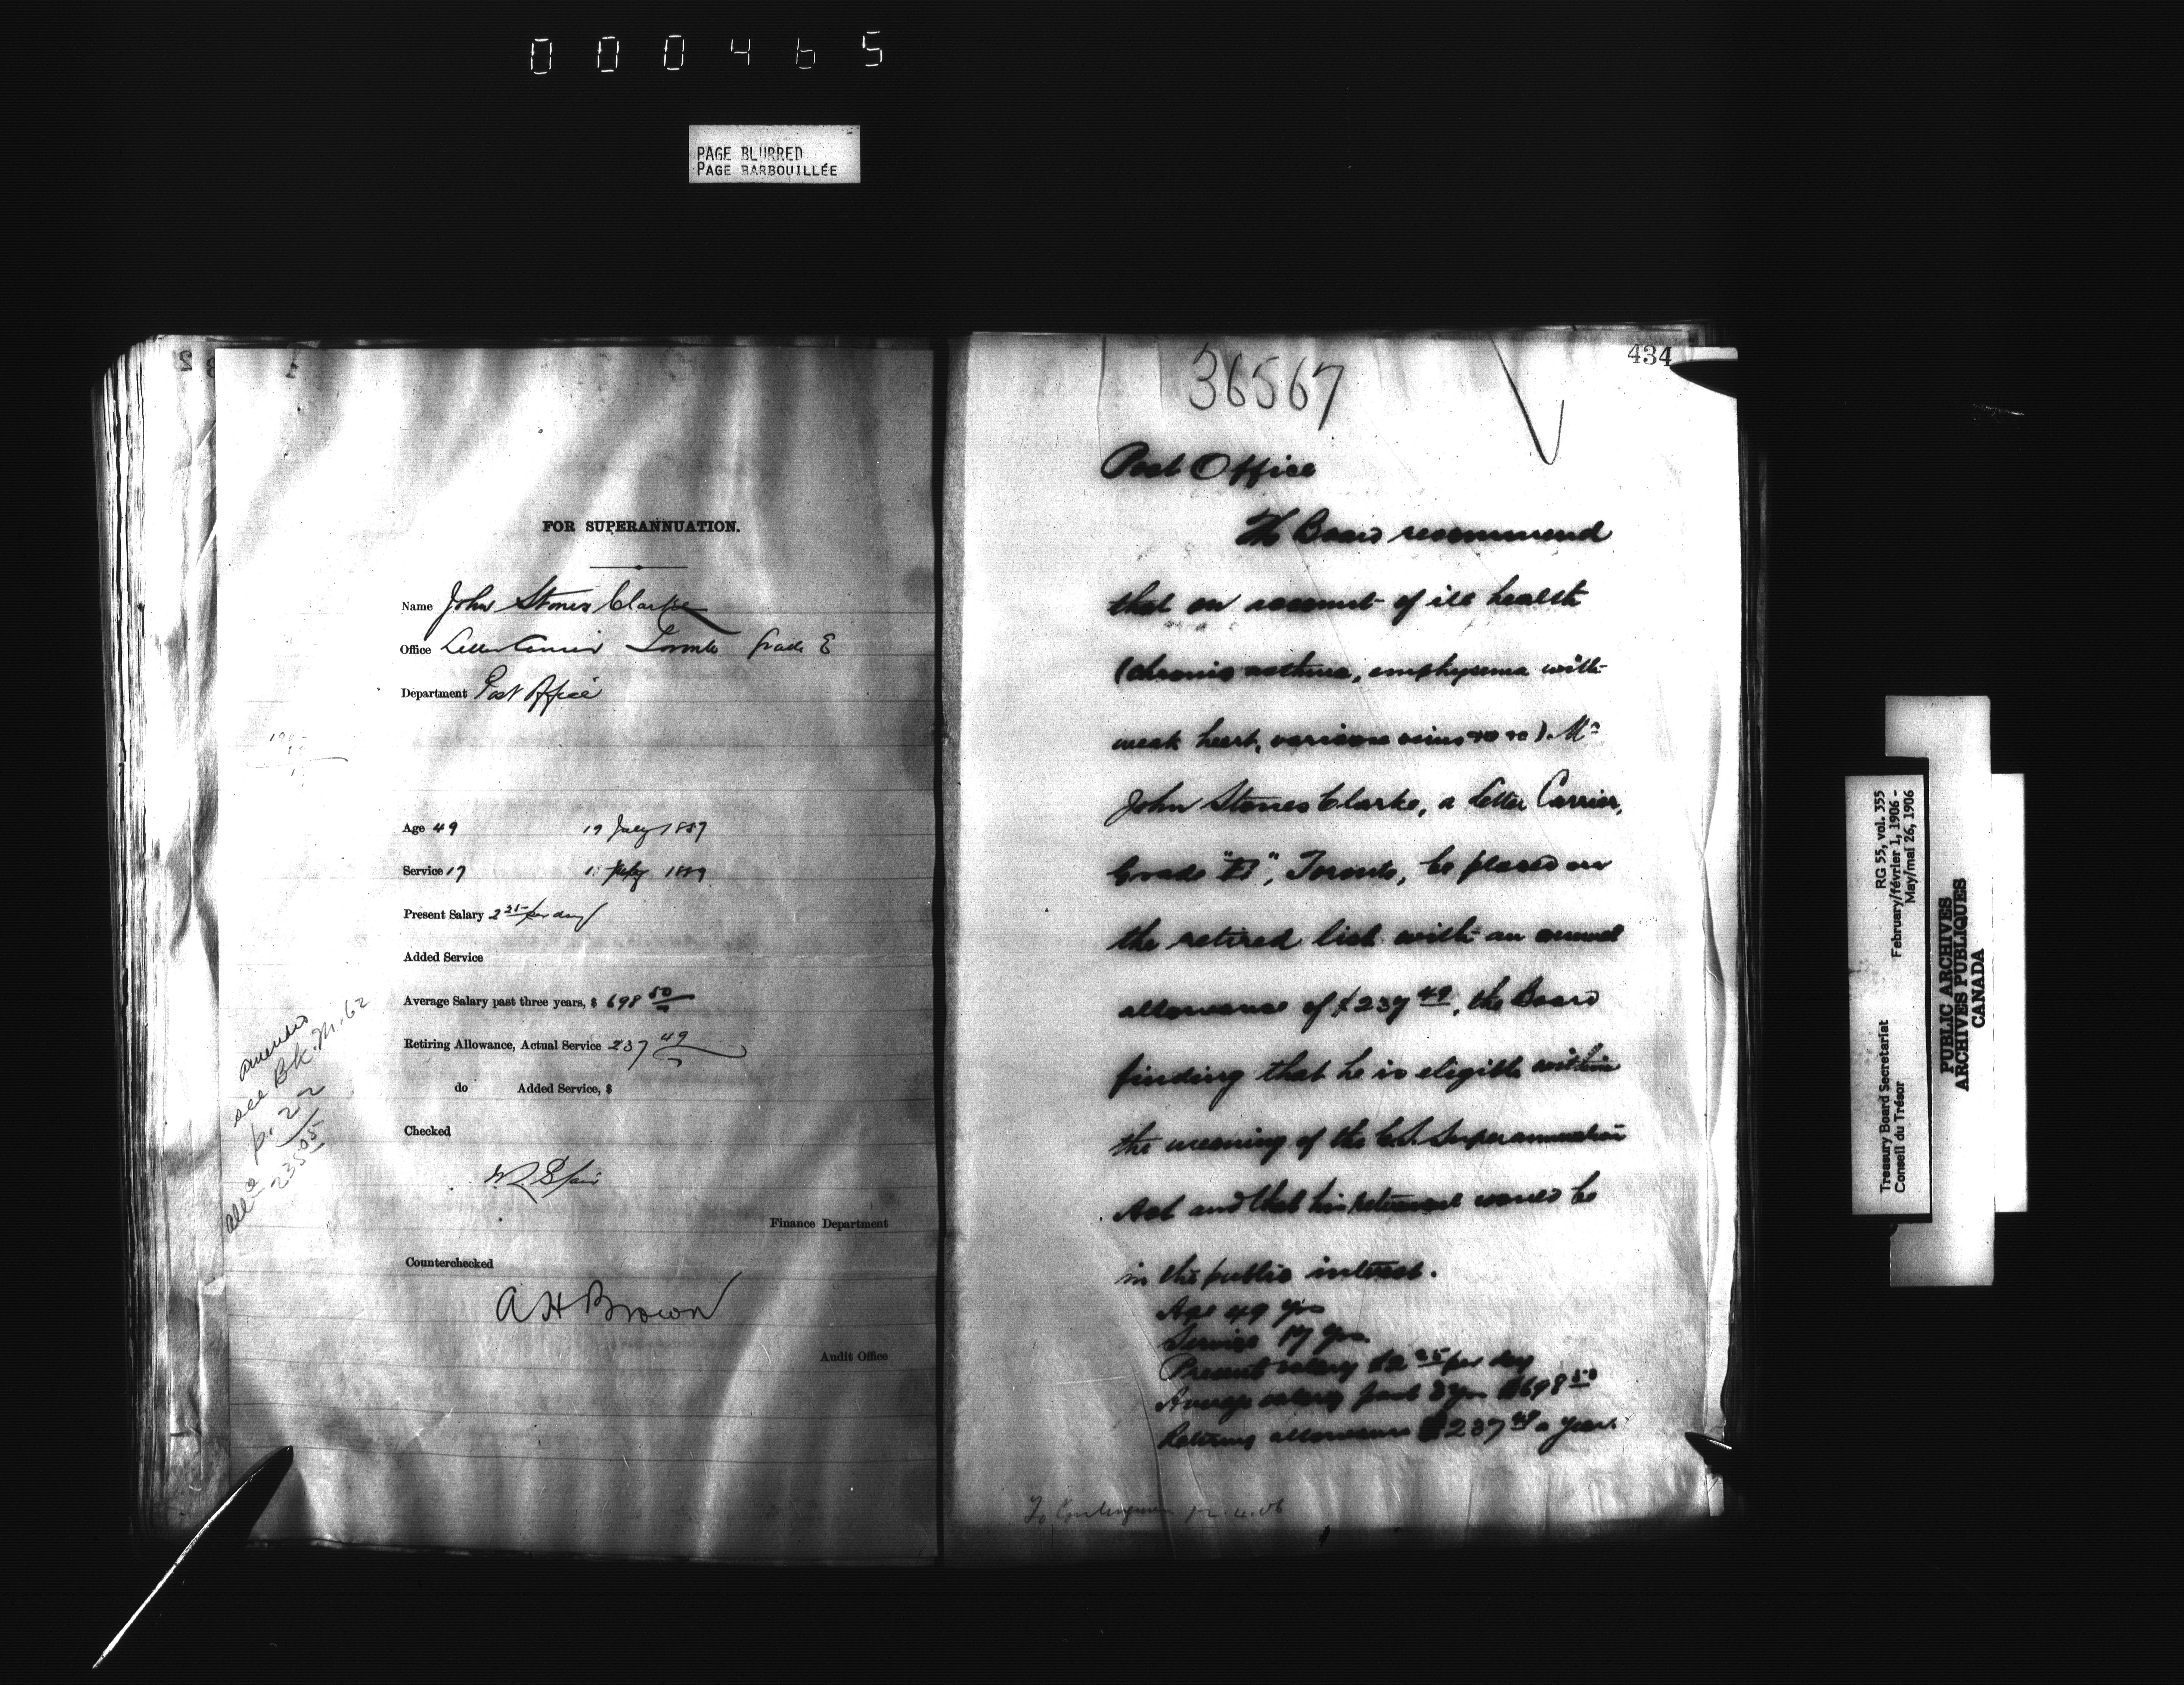 000465
PAGE BLURRED
PAGE BARBOUILLÉE
FOR SUPERANNUATION.
Name John Stones Clarke
Office Letter Carrier Toronto Grade E
Department Post Office
Age 49 19 July 1857
Service 17 1 1889
Present Salary 2 25 per day
Added Service
Average Salary past three years, $ 698 50
Retiring Allowance, Actual Service 237 49
do Added Service, $
Checked
Finance Department
Counterchecked
A H Brown
Audit Office
see Bk. M. 62
p. 22
235 05
434
36567
Post Office
The Board recommend
that on account of ill health
(chronic asthma, emphysema with
weak heart, varicose veins &c &c) Mr
John Stones Clarke, a Letter Carrier,
Grade "E", Toronto, be placed on
the retired list with an annual
allowance of $237 49, the Board
finding that he is eligible within
the meaning of the C.S. Superannuation
Act and that his retirement would be
in the public interest.
Age 49 yrs
Service 17 yrs.
Present salary $2 25 per day
Average salary past 3 yrs $698 50
Retiring allowance $237 49 a year.
To 12.4.06
Treasury Board Secretariat RG 55, vol. 355
Conseil du Trésor February/février 1, 1906 -
May/mai 26, 1906
PUBLIC ARCHIVES
ARCHIVES PUBLIQUES
CANADA